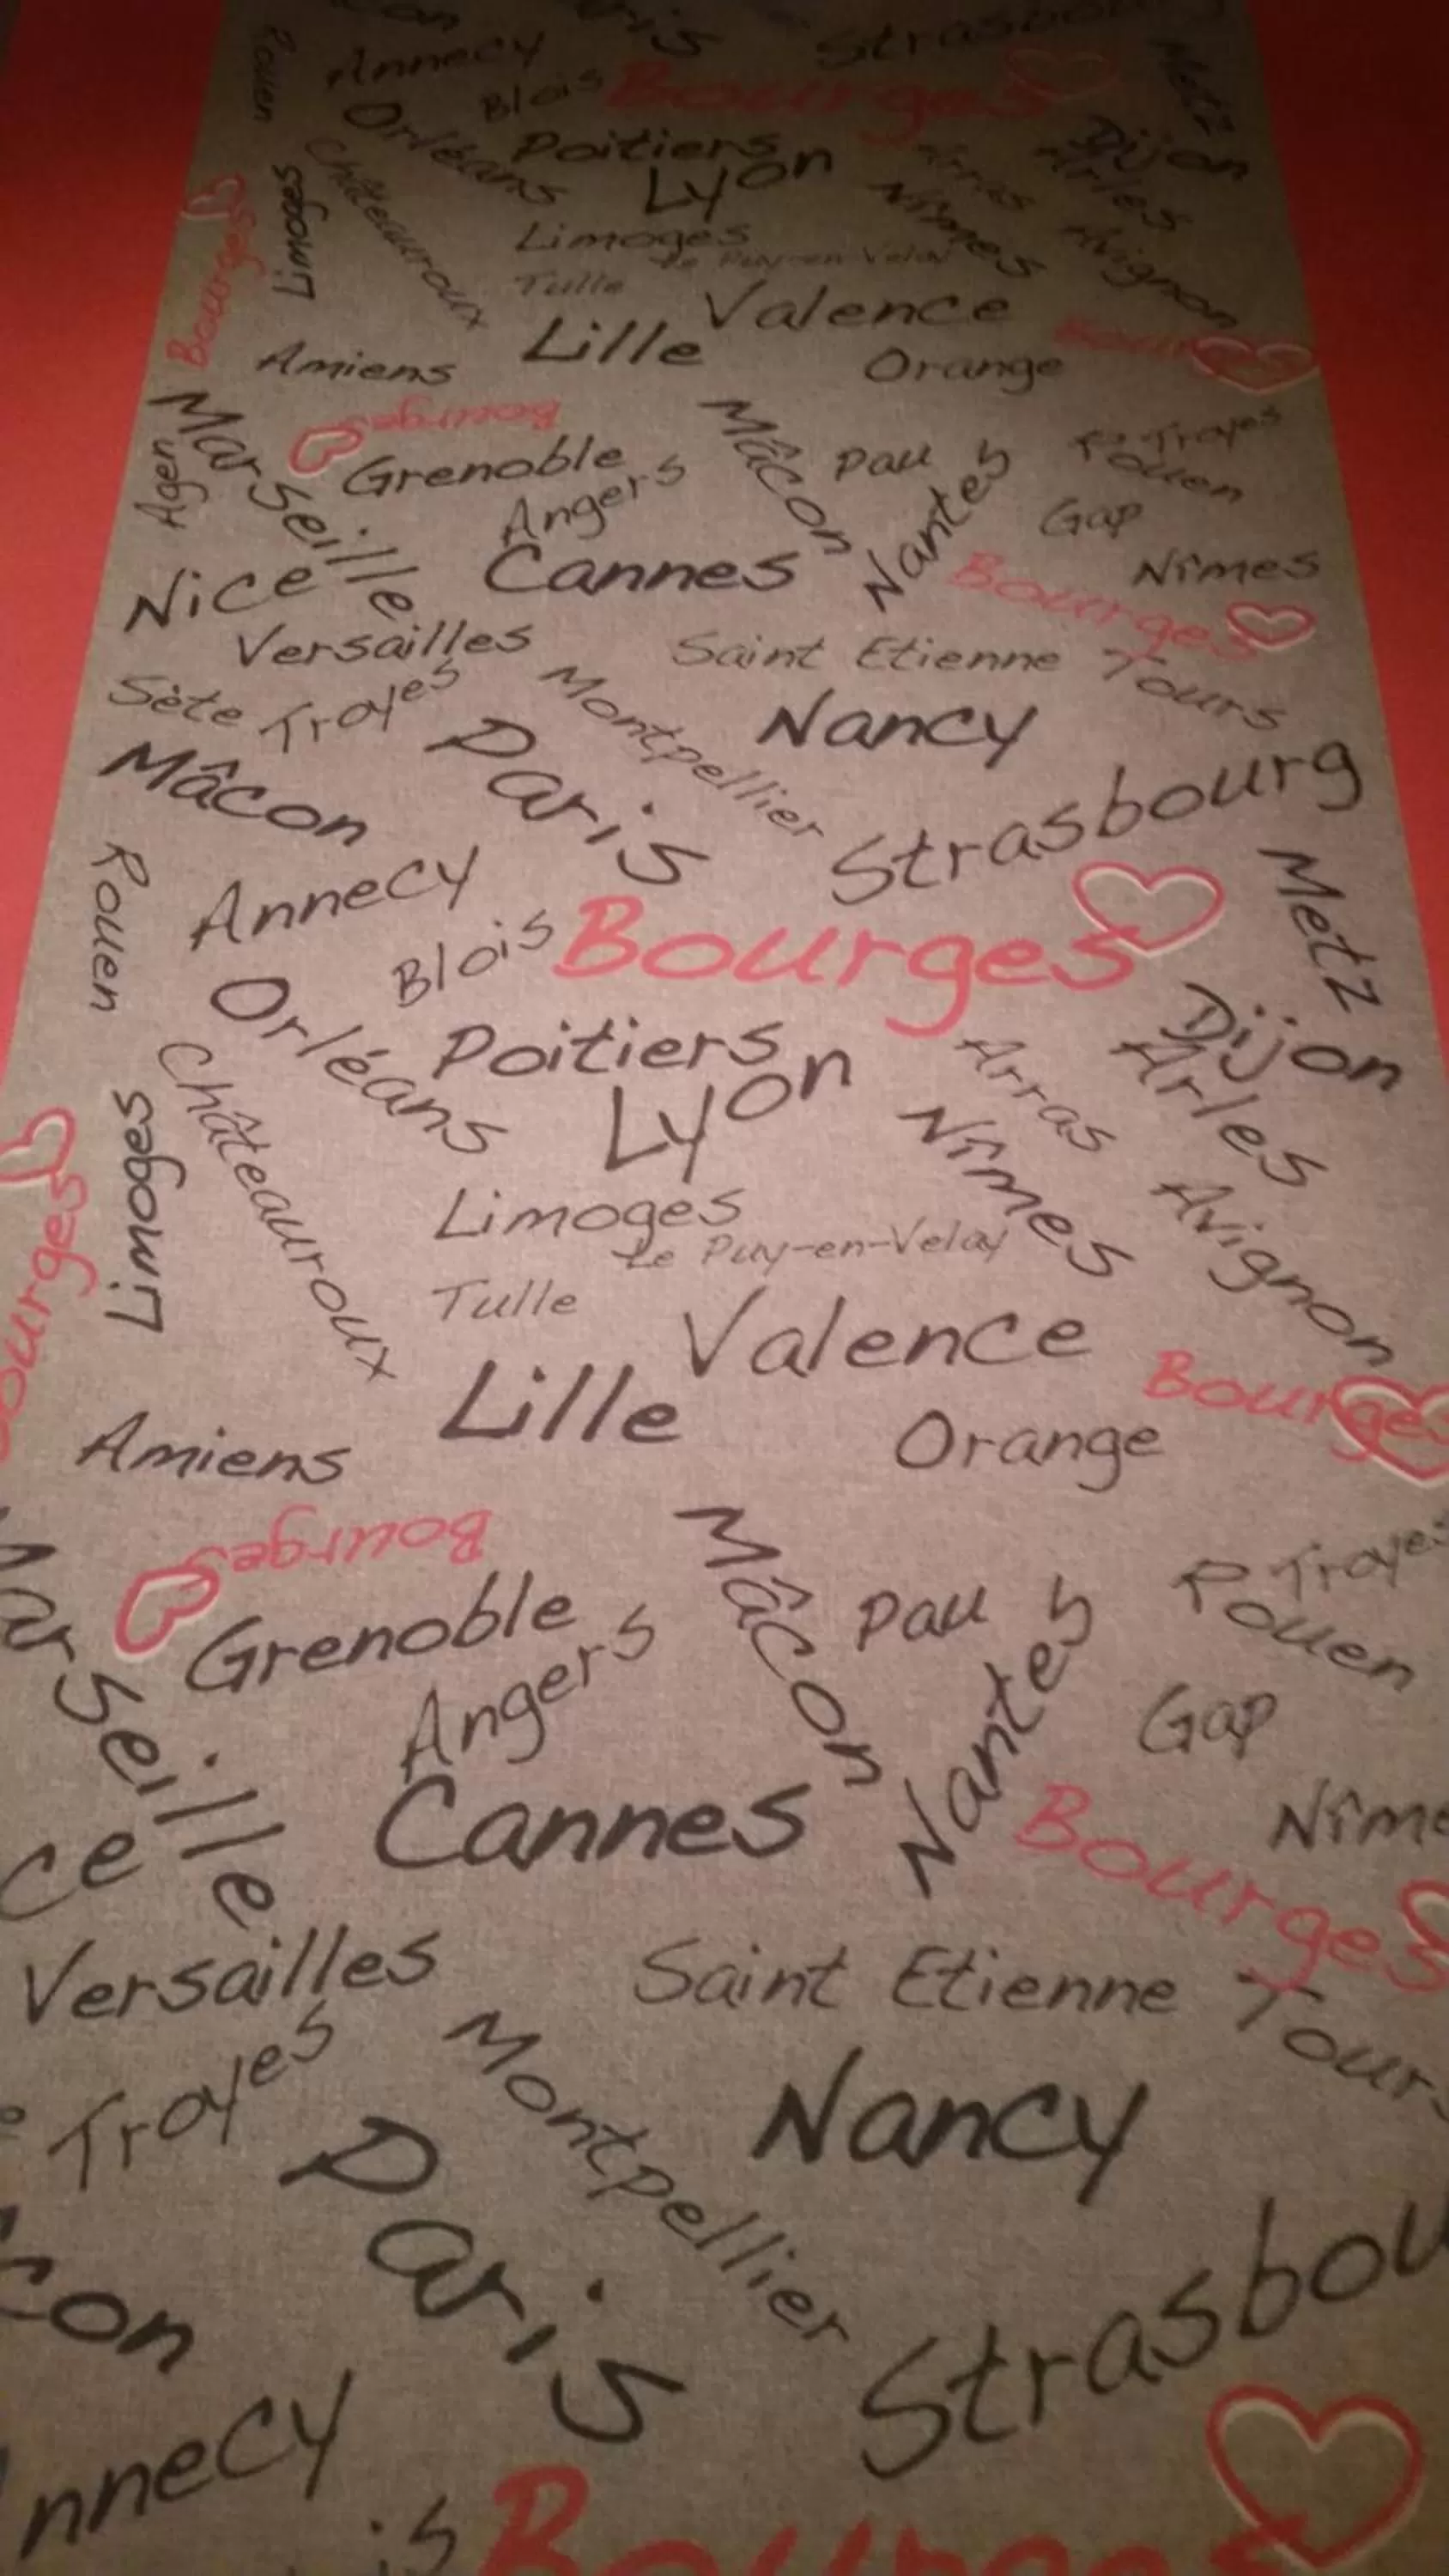 con
aris
Strasbourg
Rouen
Annecy
Blois
Bourges
Metz
Orléans
Poitiers
Lyon
Dijon
Arras
Arles
Nîmes
Limoges
Châteauroux
Limoges
Le Puy-en-Velay
Avignon
Bourges
Tulle
Valence
Lille
Amiens
Orange
Bour
Marseille
Bourges
Mâcon
Agen
Grenoble
Angers
Pau
Nantes
Troyes
Rouen
Gap
Nice
Cannes
Bourges
Nîmes
Versailles
Saint Etienne
Tours
Sète
Troyes
Montpellier
Nancy
Mâcon
Paris
Strasbourg
Rouen
Annecy
Blois
Bourges
Metz
Orléans
Poitiers
Lyon
Dijon
Arras
Arles
Nîmes
Limoges
Châteauroux
Limoges
Le Puy-en-Velay
Avignon
Bourges
Tulle
Valence
Lille
Bourges
Amiens
Orange
Marseille
Bourges
Mâcon
Grenoble
Angers
Pau
Nantes
Troyes
Rouen
Gap
Cannes
Bourges
Nîme
ce
Versailles
Saint Etienne
Tours
Troyes
Montpellier
Nancy
Paris
con
Strasbou
nnecy
is
Bourges